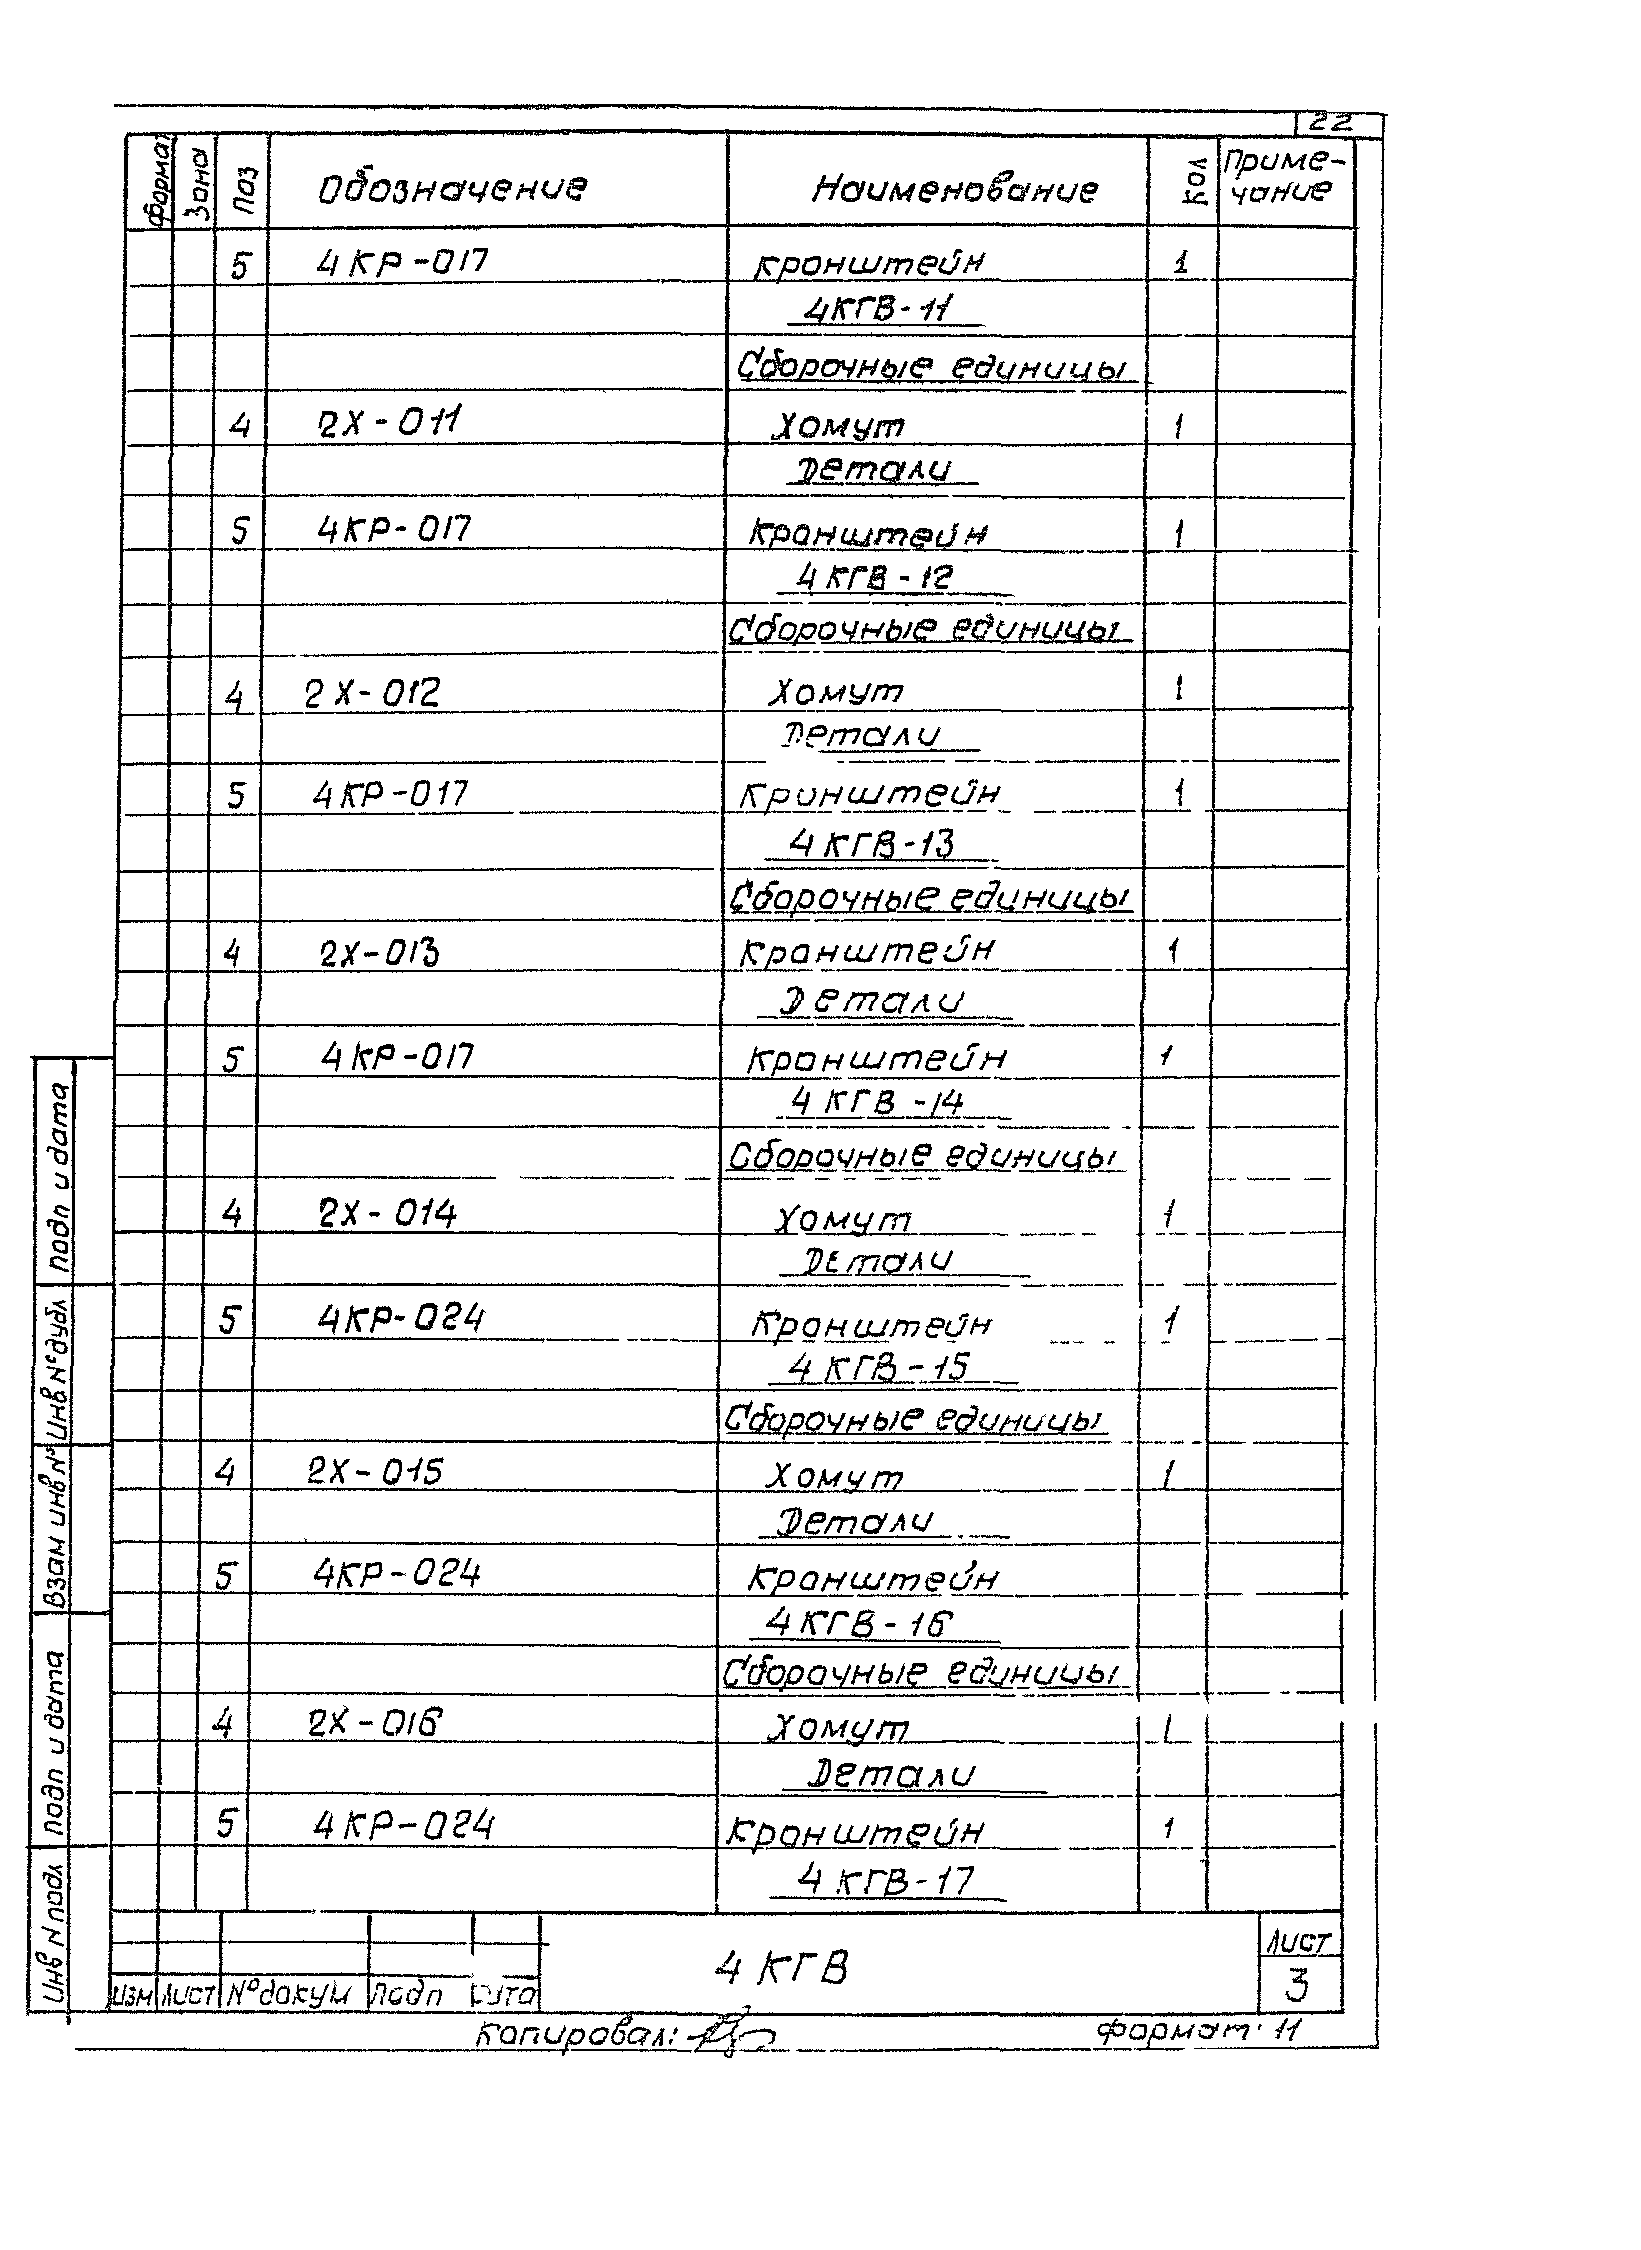 22
Формат Зона Поз Обозначение Наименование Кол Приме-
чание
5 4КР-017 Кронштейн 1
4КГВ-11
Сборочные единицы
4 2Х-011 Хомут 1
Детали
5 4КР-017 Кронштейн 1
4КГВ-12
Сборочные единицы
4 2Х-012 Хомут 1
Детали
5 4КР-017 Кронштейн 1
4КГВ-13
Сборочные единицы
4 2Х-013 Кронштейн 1
Детали
5 4КР-017 Кронштейн 1
4КГВ-14
Сборочные единицы
4 2Х-014 Хомут 1
Детали
5 4КР-024 Кронштейн 1
4КГВ-15
Сборочные единицы
4 2Х-015 Хомут 1
Детали
5 4КР-024 Кронштейн
4КГВ-16
Сборочные единицы
4 2Х-016 Хомут 1
Детали
5 4КР-024 Кронштейн 1
4КГВ-17
Подп и дата
Инв № дубл
Взам инв №
Подп и дата
Инв N подл
4КГВ
Лист
3
Изм Лист № докум Подп Дата
Копировал:
Формат 11